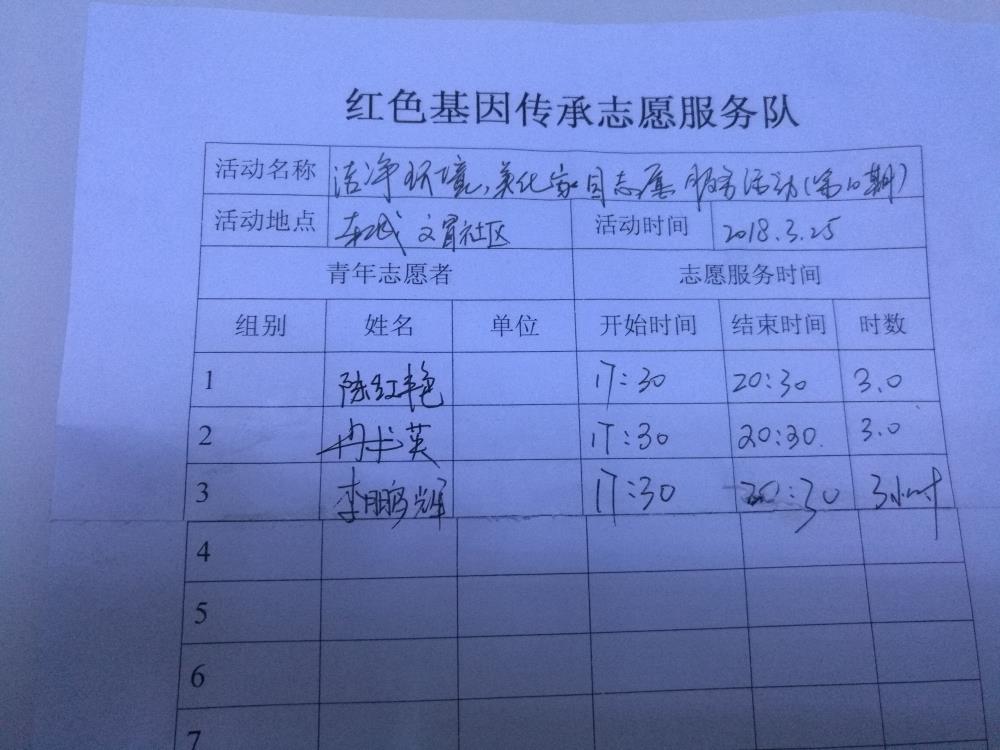 红色基因传承志愿服务队
活动名称 洁净环境,美化家园志愿服务活动(第10期)
活动地点 东城文冒社区 活动时间 2018.3.25
青年志愿者 志愿服务时间
组别 姓名 单位 开始时间 结束时间 时数
1 陈红艳 17:30 20:30 3.0
2 冉书英 17:30 20:30. 3.0
3 李鹏辉 17:30 20:30 3小时
4
5
6
7